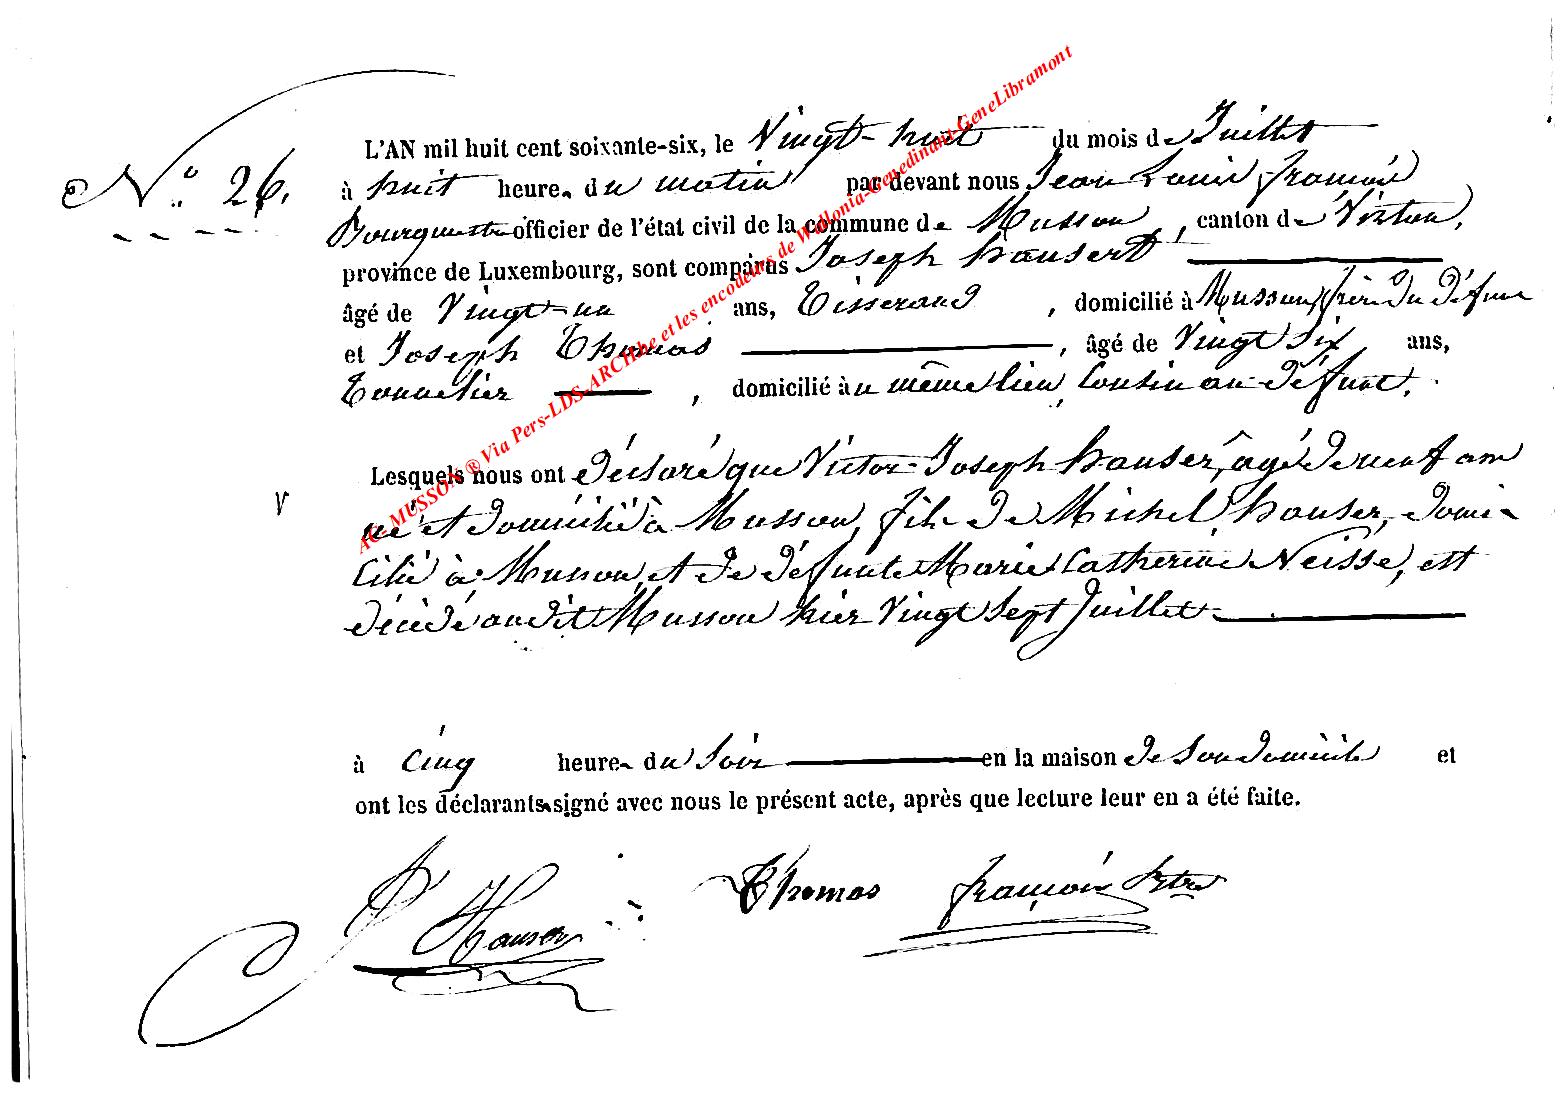 N° 26.
L'AN mil huit cent soixante-six, le Vingt-huit du mois de Juillet
à huit heures du matin par devant nous Jean Louis françois
Bourgmestre officier de l'état civil de la commune de Musson, canton de Virton,
province de Luxembourg, sont comparus Joseph hausert
âgé de Vingt-un ans, Tisserand, domicilié à Musson, frère du défunt
et Joseph Thomas, âgé de Vingt Six ans,
Tonnelier, domicilié au même lieu, Cousin au défunt.
Lesquels nous ont déclaré que Victor-Joseph hauser, âgé de neuf ans
V
né et domicilié à Musson, fils de Michel hauser, domi-
cilié à Musson, et de défunte Marie Catherine Neisse, est
décédé audit Musson hier Vingt Sept Juillet
à Cinq heures du Soir en la maison de Son domicile et
ont les déclarants signé avec nous le présent acte, après que lecture leur en a été faite.
J Hauser Thomas françois
AC-MUSSON ® Via Pers-LDS-ARCH.be et les encodeurs de Wallonia-Genedinant-GeneLibramont